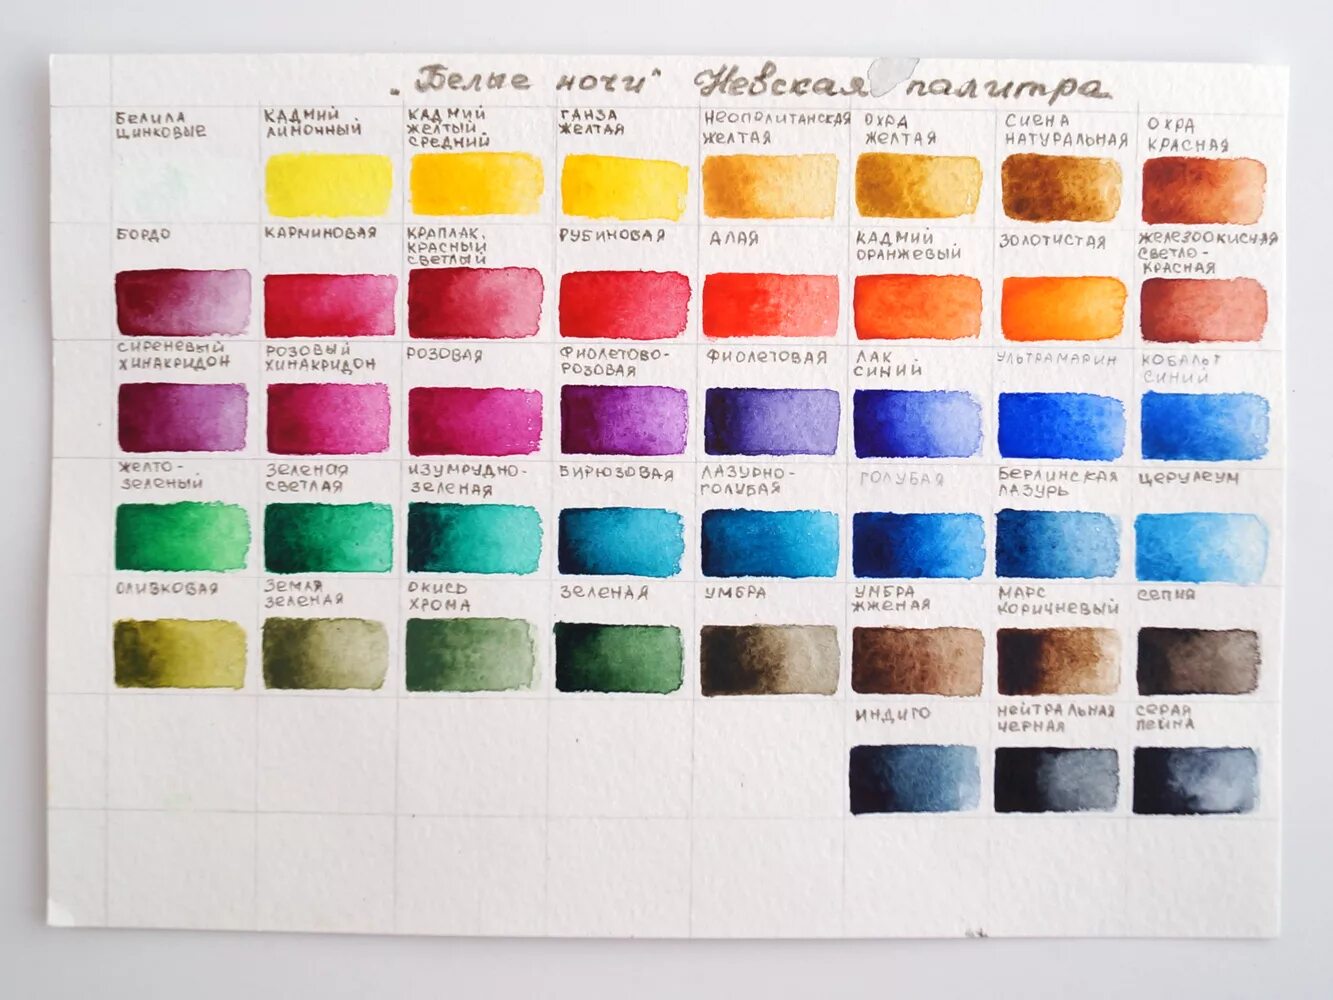 „Белые ночи" Невская палитра
БЕЛИЛА
ЦИНКОВЫЕ
КАДМИЙ
ЛИМОННЫЙ
КАДМИЙ
ЖЕЛТЫЙ
СРЕДНИЙ
ГАНЗА
ЖЕЛТАЯ
НЕОПОЛИТАНСКАЯ
ЖЕЛТАЯ
ОХРА
ЖЕЛТАЯ
СИЕНА
НАТУРАЛЬНАЯ
ОХРА
КРАСНАЯ
БОРДО
КАРМИНОВАЯ
КРАПЛАК
КРАСНЫЙ
СВЕТЛЫЙ
РУБИНОВАЯ
АЛАЯ
КАДМИЙ
ОРАНЖЕВЫЙ
ЗОЛОТИСТАЯ
ЖЕЛЕЗООКИСНАЯ
СВЕТЛО-
КРАСНАЯ
СИРЕНЕВЫЙ
ХИНАКРИДОН
РОЗОВЫЙ
ХИНАКРИДОН
РОЗОВАЯ
ФИОЛЕТОВО-
РОЗОВАЯ
ФИОЛЕТОВАЯ
ЛАК
СИНИЙ
УЛЬТРАМАРИН
КОБАЛЬТ
СИНИЙ
ЖЕЛТО-
ЗЕЛЕНЫЙ
ЗЕЛЕНАЯ
СВЕТЛАЯ
ИЗУМРУДНО-
ЗЕЛЕНАЯ
БИРЮЗОВАЯ
ЛАЗУРНО-
ГОЛУБАЯ
ГОЛУБАЯ
БЕРЛИНСКАЯ
ЛАЗУРЬ
ЦЕРУЛЕУМ
ОЛИВКОВАЯ
ЗЕМЛЯ
ЗЕЛЕНАЯ
ОКИСЬ
ХРОМА
ЗЕЛЕНАЯ
УМБРА
УМБРА
ЖЖЕНАЯ
МАРС
КОРИЧНЕВЫЙ
СЕПИЯ
ИНДИГО
НЕЙТРАЛЬНАЯ
ЧЕРНАЯ
СЕРАЯ
ПЕЙНА